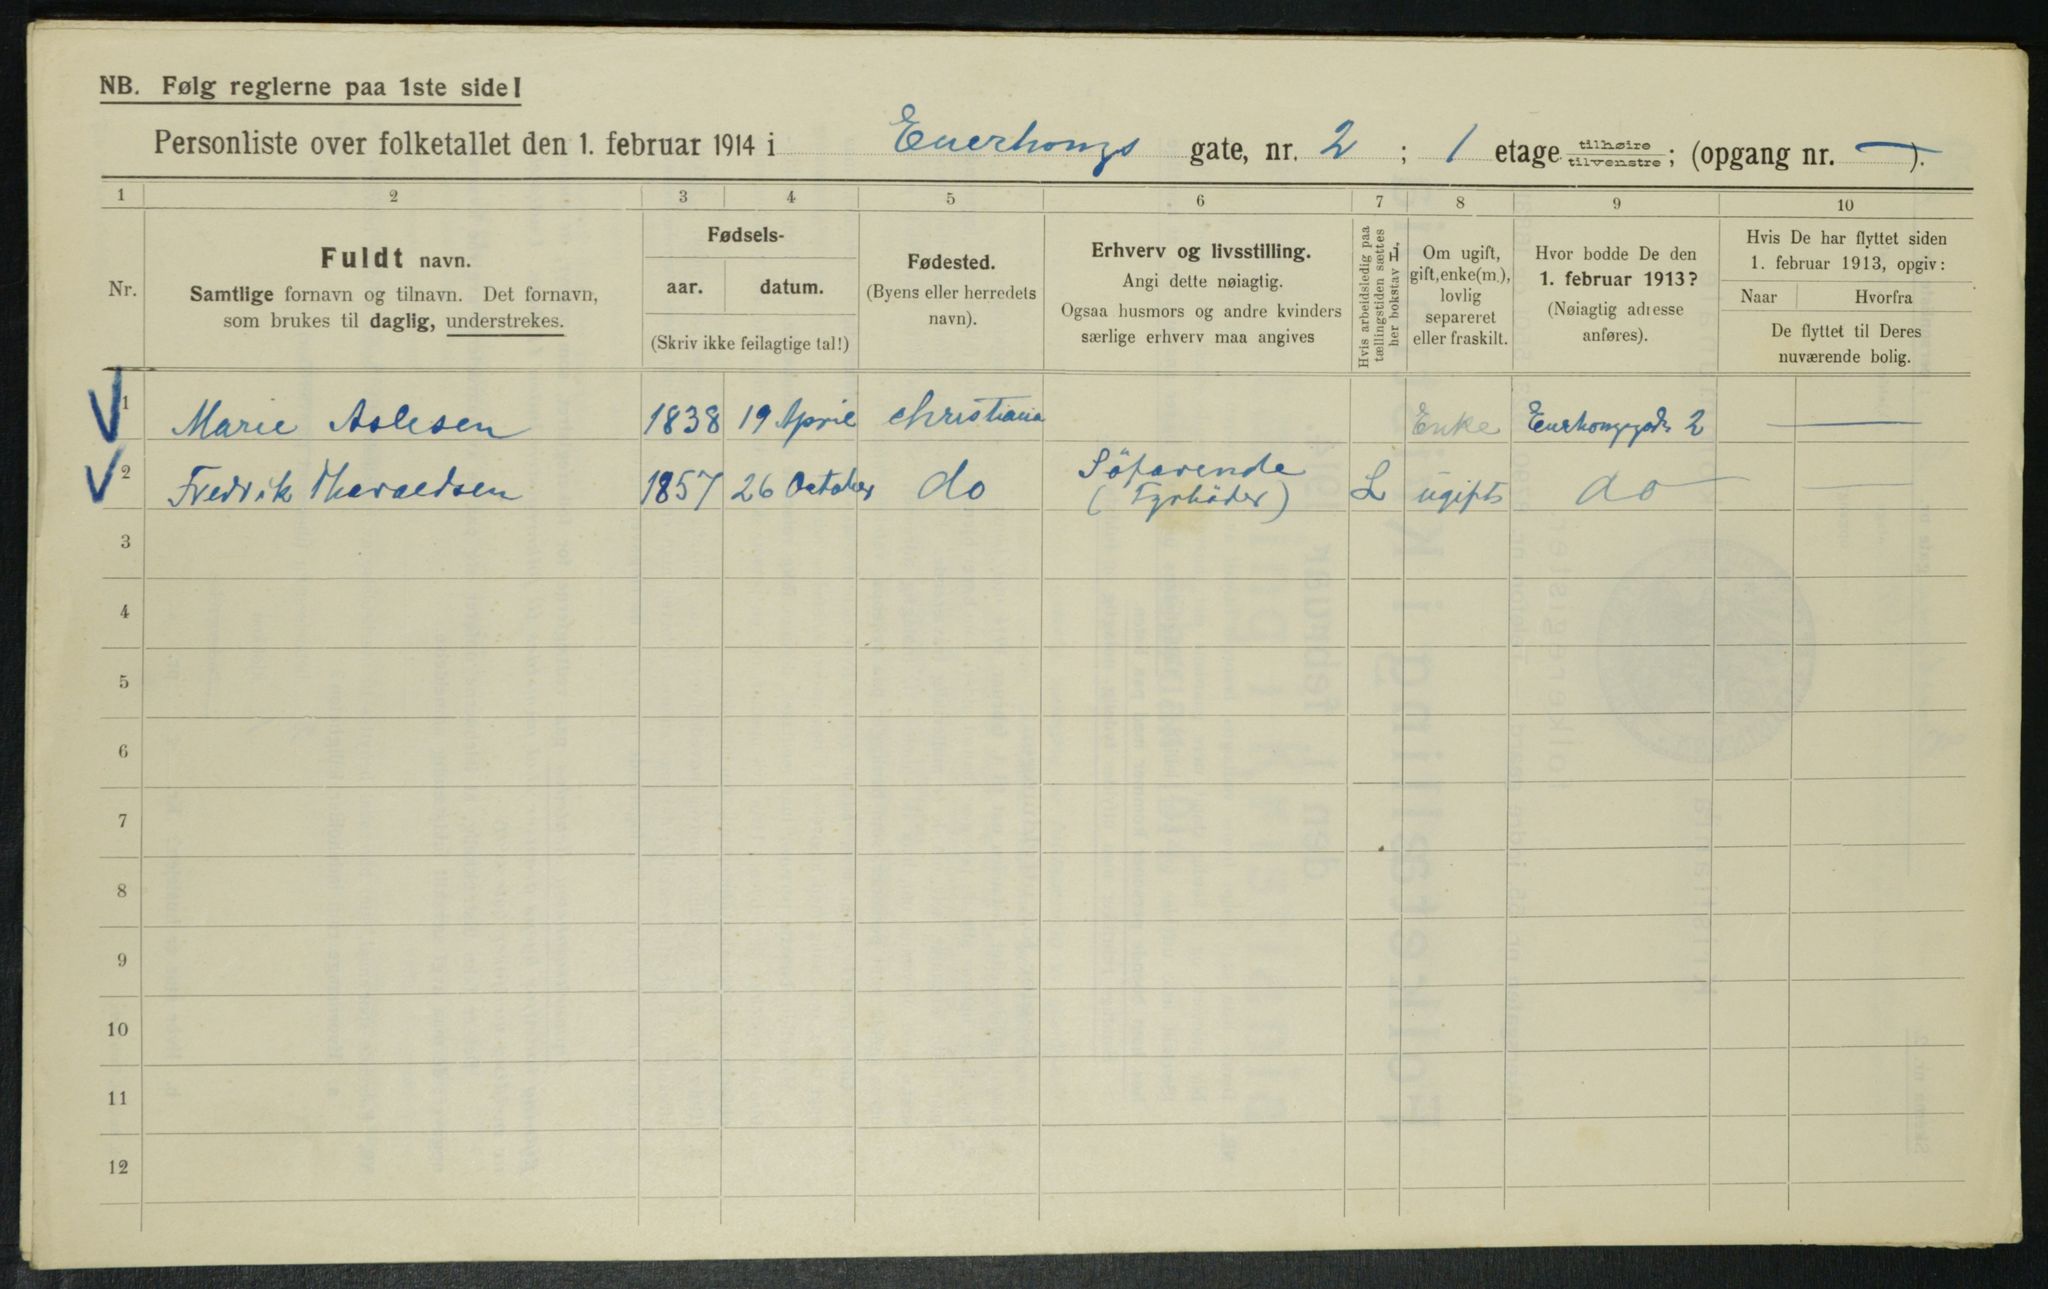 NB. Følg reglerne paa 1ste side!
Personliste over folketallet den 1. februar 1914 i Enerhougs gate, nr. 2 ; 1 etage tilhøire tilvenstre ; (opgang nr. — ).
1 2 3 4 5 6 7 8 9 10
Nr.
Fuldt navn.
Samtlige fornavn og tilnavn. Det fornavn,
som brukes til daglig, understrekes.
Fødsels-
aar. datum.
(Skriv ikke feilagtige tal!)
Fødested.
(Byens eller herredets
navn).
Erhverv og livsstilling.
Angi dette nøiagtig.
Ogsaa husmors og andre kvinders
særlige erhverv maa angives
Hvis arbeidsledig paa
tællingstiden sættes
her bokstav L,
Om ugift,
gift, enke(m.),
lovlig
separeret
eller fraskilt.
Hvor bodde De den
1. februar 1913?
(Nøiagtig adresse
anføres).
Hvis De har flyttet siden
1. februar 1913, opgiv:
Naar Hvorfra
De flyttet til Deres
nuværende bolig.
1 Marie Aslesen 1838 19 April Christiania Enke Enerhougsgade 2 —
2 Fredrik Tharaldsen 1857 26 October do Söfarende (Fyrböder) L ugift do —
3
4
5
6
7
8
9
10
11
12